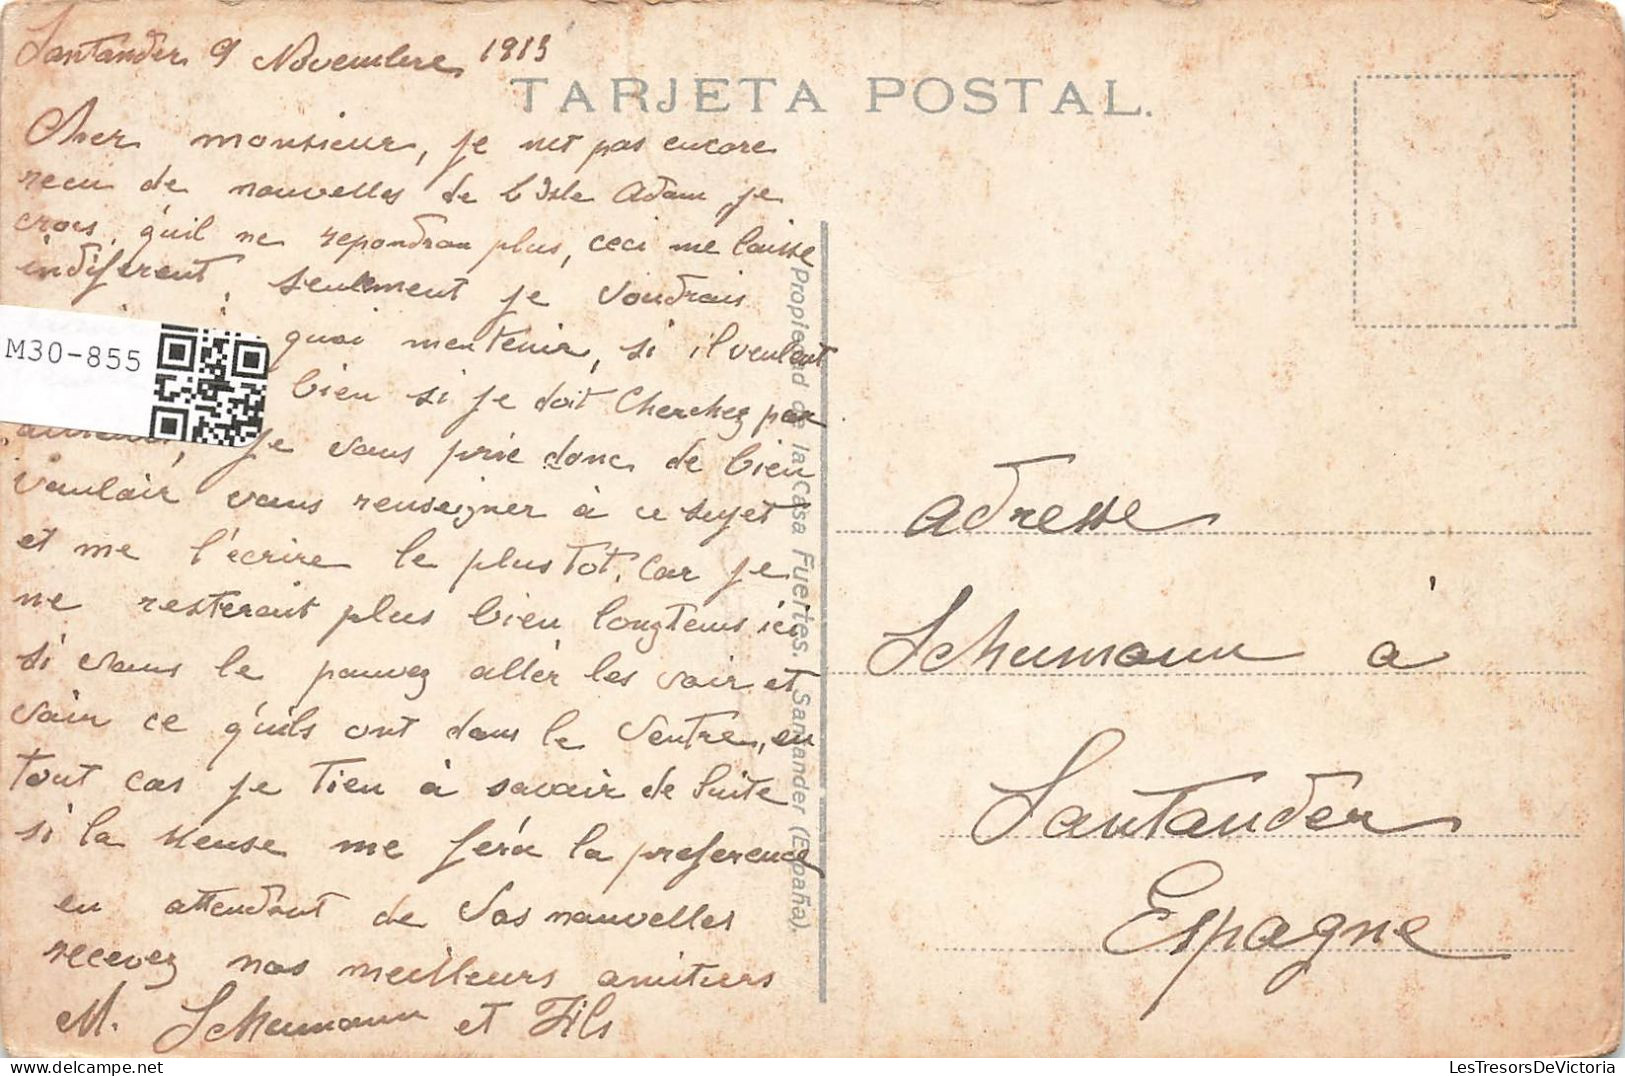 Santander 9 Novembre 1913
TARJETA POSTAL.
Cher monsieur, je net pas encore
recu de nouvelles de L'Isle Adam je
crois, qu'il ne repondron plus, ceci me laisse
indiferent, seulement je voudrais
quoi mentenir, si il veulent
bien si je doit Cherchez par
je vous prie donc de bien
voulair vous renseigner à ce sujet
et me l'écrire le plus tot, car je
ne resterait plus bien longtems ici
si vous le pouvez allér les voir et
voir ce q'uils ont dans le ventre, en
tout cas je tien à savoir de suite
si la Meuse me féra la preference
en attendant de vos nouvelles
recevez nos meilleurs amitiers
M. Schumann et Fils
M30-855
Propiedad de la Casa Fuertes. Santander (España).
adresse
Schumann à
Santander
Espagne
LesTresorsDeVictoria